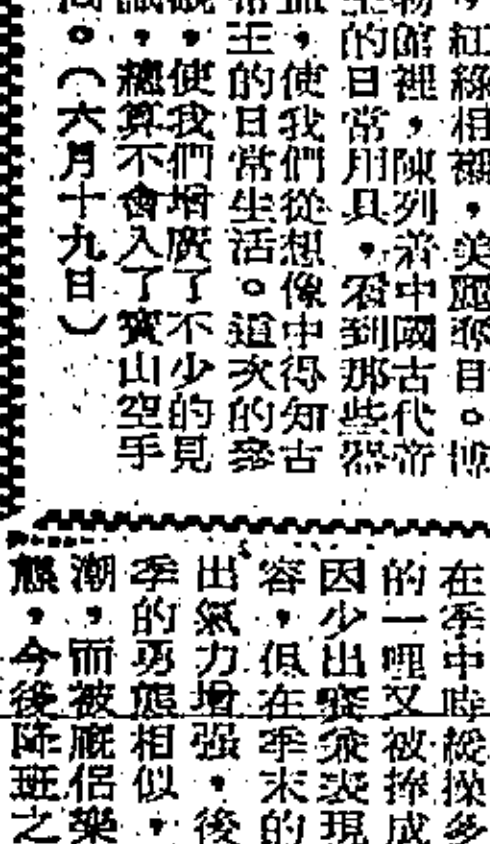 ，紅綠相襯，美麗奪目。博
物館裡，陳列着中國古代帝
王的日常用具，看到那些器
皿，使我們從想像中得知古
帝王的日常生活。這次的參
觀，使我們增廣了不少的見
識，總算不會入了寶山空手
。（六月十九日）
在季中時縱操多
的一哩又被摔成
因少出賽表現
容，但在季末的
出氣力增强，後
季的勇態相似，
潮，而被
態，今後降班之